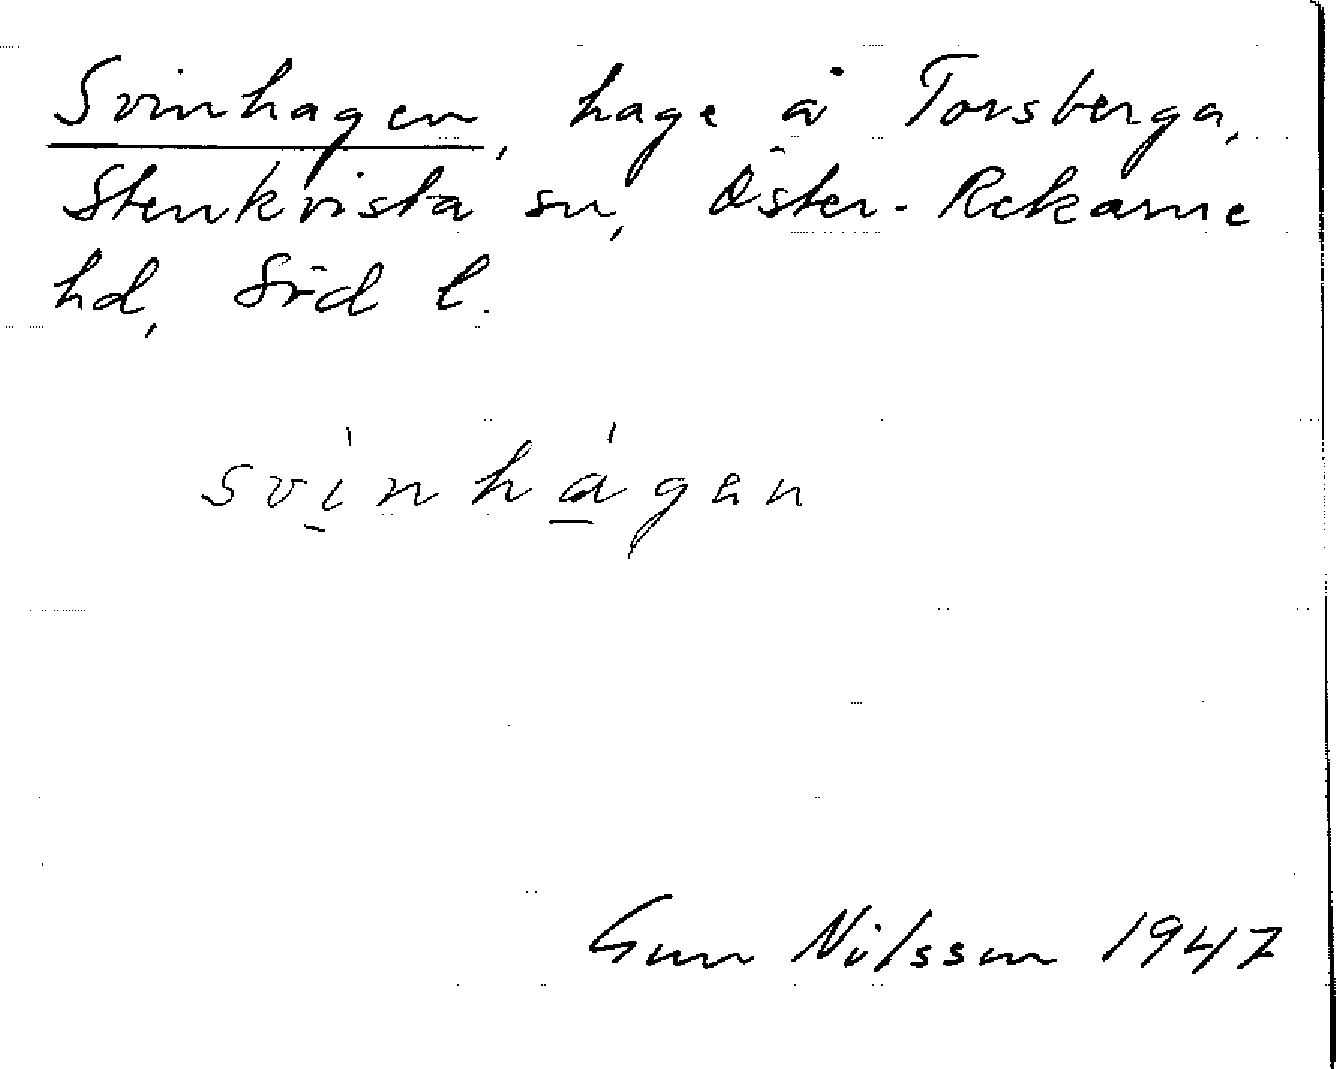 Svinhagen, hage å Torsberga,
Stenkvista sn, Öster-Rekarne
hd, Söd l.
svinhagan
Gun Nilsson 1947